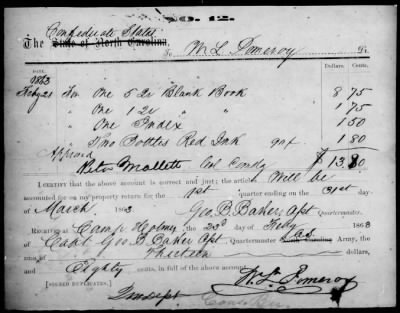 NO. 12.
Confederate States
The State of North Carolina,
To W. L. Pomeroy Dr.
DATE. Dollars. Cents.
1863
Feby 21 For One 5 qr Blank Book 8 75
" One 1 qr " " 1 75
" One Index 1 50
" Two Bottles Red Ink 90 1 80
Approved $ 13.80
Peter Mallett Col Comdg
I CERTIFY that the above account is correct and just; the articles will be
accounted for on my property return for the 1st quarter ending on the 31st day
of March 1863 Geo. B. Baker, Apt Quartermaster.
RECEIVED at Camp Holmes the 23d of Feby 1863
of Capt Geo B Baker Apt, Quartermaster North Carolina Army, the
sum of Thirteen dollars,
and Eighty cents, in full of the above account.
[SIGNED DUPLICATES.] W. L. Pomeroy